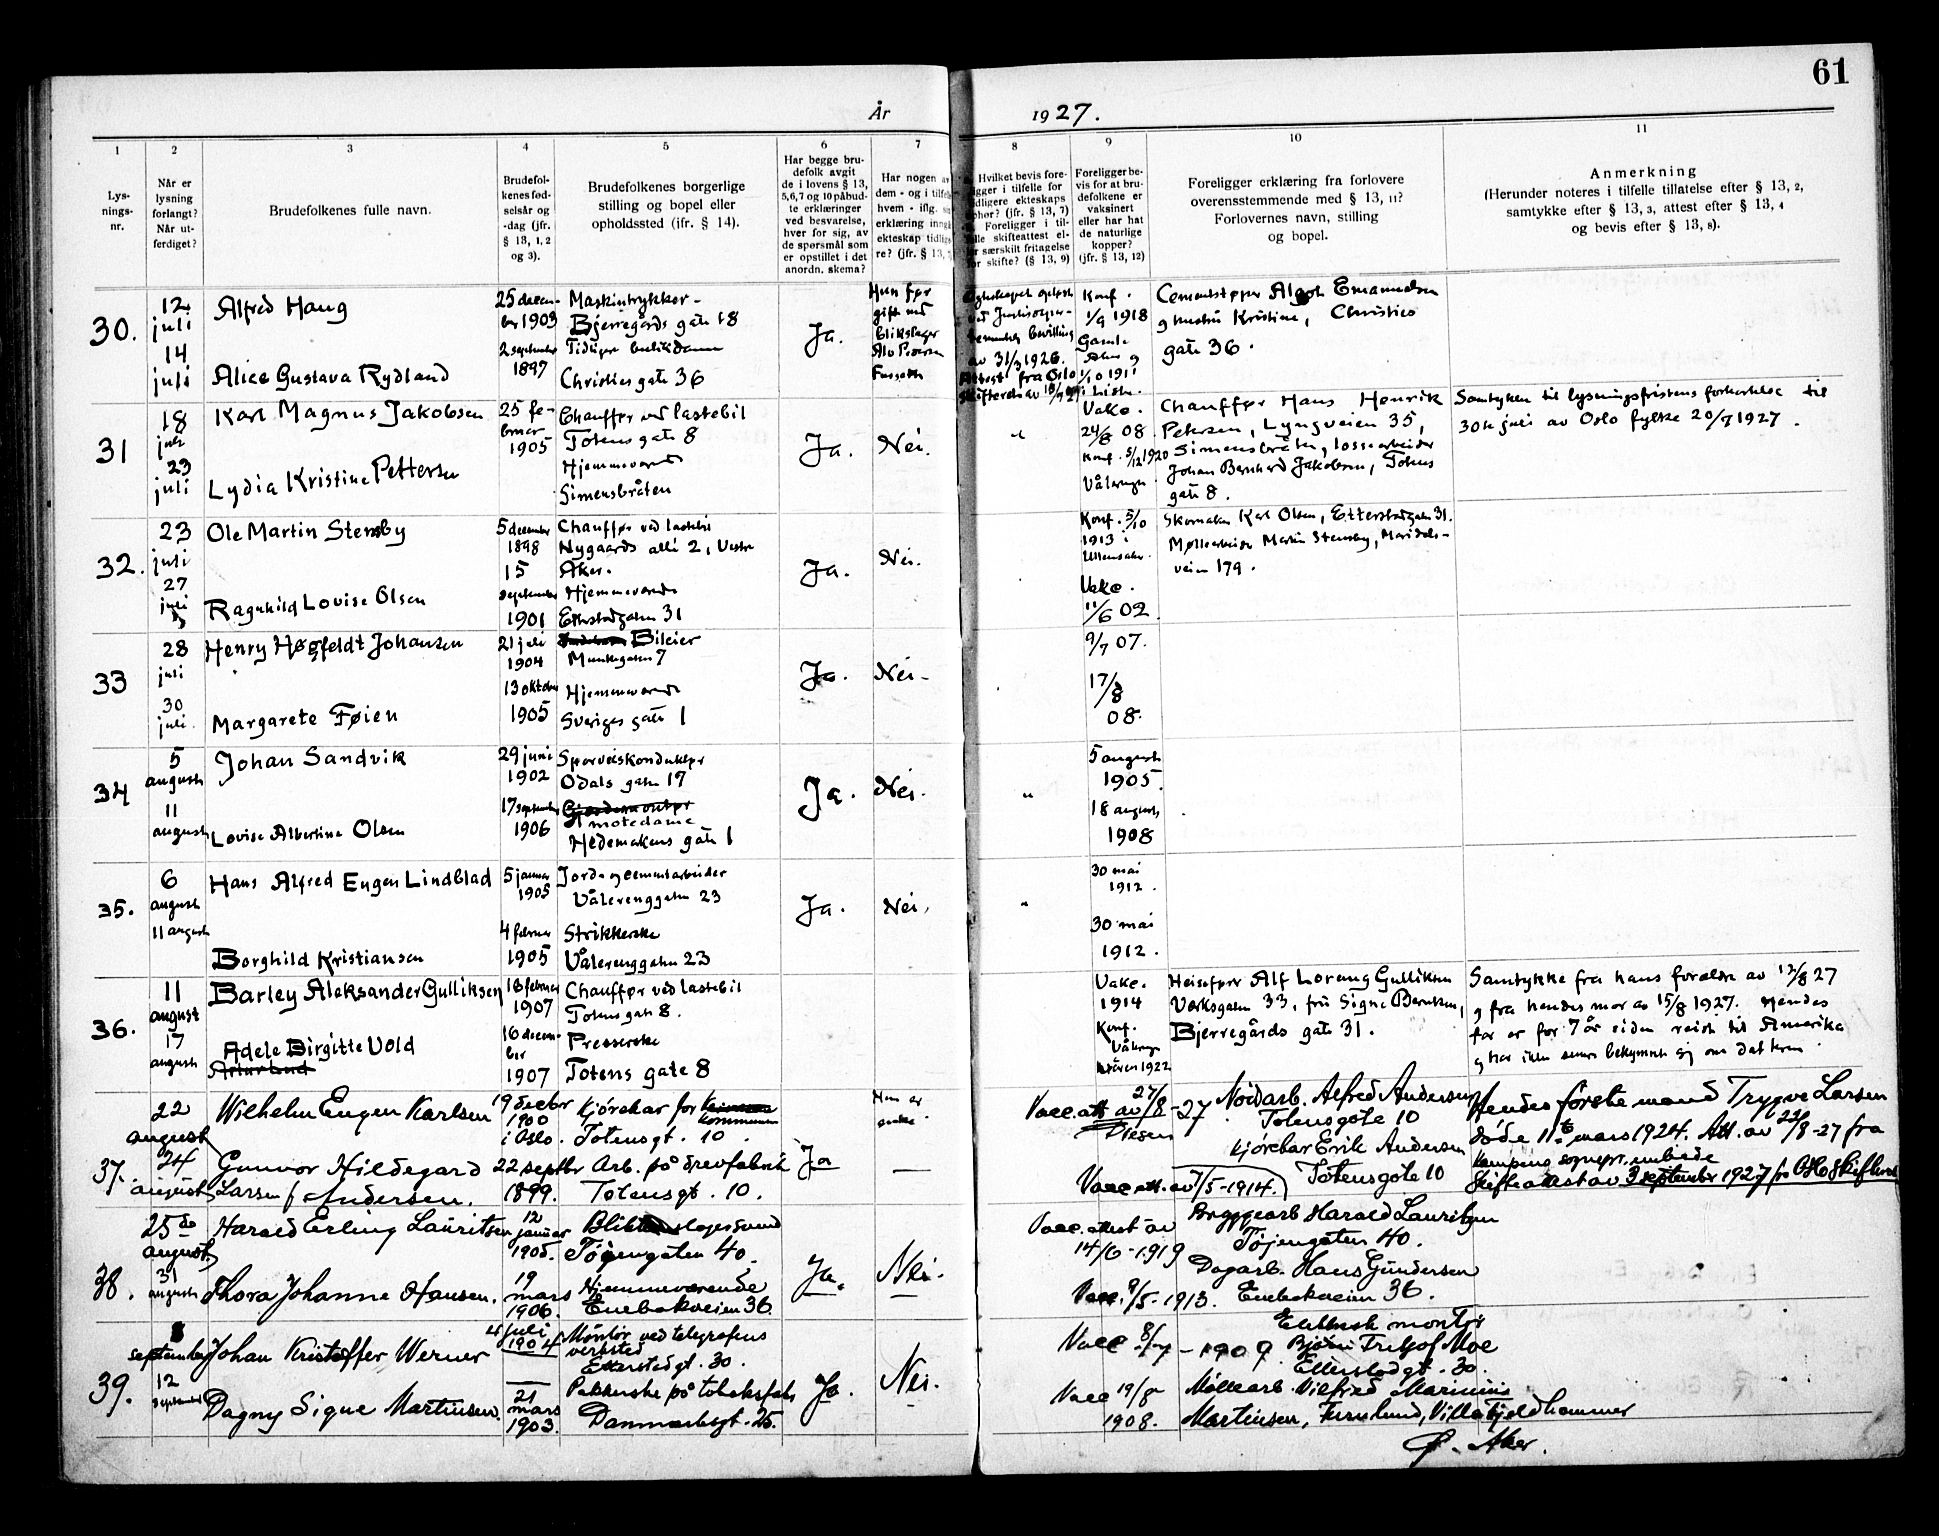 61
År 1927.
1
2
3
4
5
6
7
8
9
10
11
Lys-
nings-
nr.
Når er
lysning
forlangt?
Når ut-
ferdiget?
Brudefolkenes fulle navn.
Brudefol-
kenes fød-
selsår og
-dag (jfr.
§ 13, 1, 2
og 3).
Brudefolkenes borgerlige
stilling og bopel eller
opholdssted (ifr. § 14).
Har begge bru-
defolk avgit
de i lovens § 13,
5,6,7 og 10 påbud-
te erklæringer
ved besvarelse,
hver for sig, av
de spørsmål som
er opstillet i det
anordn. skema?
Har nogen av
dem - og i tilfelle
hvem - iflg.
erklæring inngått
ekteskap tidlige-
re? (jfr. § 13,
Hvilket bevis fore-
ligger i tilfelle for
tidligere ekteskaps
ophør? (jfr. § 13, 7)
Foreligger i til-
felle skifteattest el-
ler særskilt fritagelse
for skifte? (§ 13, 9)
Foreligger be-
vis for at bru-
defolkene er
vaksinert
eller har hat
de naturlige
kopper?
(jfr. § 13, 12)
Foreligger erklæring fra forlovere
overensstemmende med § 13, 11?
Forlovernes navn, stilling
og bopel.
Anmerkning
(Herunder noteres i tilfelle tillatelse efter § 13, 2,
samtykke efter § 13, 3, attest efter § 13, 4
og bevis efter § 13, 8).
30.
12
juli
14
juli
Alfred Haug
Alice Gustava Rydland
25 decem-
ber 1903
2 september
1897
Maskintrykker -
Bjerregårds gate 18
Tidligere butikdame
Christies gate 36
Ja.
Hun før
gift med
blikslager
Alv Pedersen
Ekteskapet opløst
ved Justisdepar-
tementets bevilling
av 31/3 1926.
Attest fra Oslo
Konf.
1/9 1918
Gamle
Aker og
1/10 1911
Cementstøper Algot Emanuelsen
og hustru Kristine, Christies
gate 36.
31
18
juli
23
juli
Karl Magnus Jakobsen
Lydia Kristine Pettersen
25 fe-
bruar
1905
Chauffør ved lastebil
Totens gate 8
Hjemmeværende
Simensbråten
Ja.
Nei.
"
Vakc.
24/8 08.
Konf. 5/12 1920
Vålerengen
Chauffør Hans Henrik
Petersen, Lyngveien 35,
Simensbråten, lossearbeider
Johan Bernhard Jakobsen, Totens
gate 8.
Samtykke til lysningsfristens forkortelse til
30te juli av Oslo fylke 20/7 1927.
32.
23
juli
27
juli
Ole Martin Stensby
Ragnhild Lovise Olsen
5 december
1898
15
september
1901
Chauffør ved lastebil
Nygaards allé 2, Vestre
Aker.
Hjemmeværende
Etterstadgaten 31
Ja.
Nei.
Konf. 5/10
1913 i
Ullensaker.
Vakc.
11/6 02
Skomaker Karl Olsen, Etterstadgaten 31.
Møllearbeider Martin Stensby, Maridals-
veien 179.
33
28
juli
30
juli
Henry Høgfeldt Johansen
Margarete Føien
21 juli
1904
13 oktober
1905
Bileier
Munkegaten 7
Hjemmeværende
Sveriges gate 1
Ja.
Nei-
9/7 07.
17/8
08.
34
5
august
11
august
Johan Sandvik
Lovise Albertine Olsen
29 juni
1902
17 september
1906
Sporveiskonduktør
Odals gaten 17
motedame
Hedemarkens gate 1
Ja.
Nei.
"
5 august
1905.
18 august
1908
35.
6
august
11 august
Hans Alfred Eugen Lindblad
Borghild Kristiansen
5 januar
1905
4 februar
1905
Jord- og cementarbeider
Vålerenggaten 23
Strikkerske
Vålerenggaten 23
Ja.
Nei,
"
30 mai
1912.
30 mai
1912.
36.
11
august
17
august
Barley Aleksander Gulliksen
Adele Birgitte Vold
18 februar
1907
16 decem-
ber
1907
Chauffør ved lastebil
Totens gate 8.
Presserske
Totens gate 8
Vakc.
1914
Konf.
Vålerengen
våren 1922
Heisefører Alf Lorang Gulliksen
Verksgaten 33, frü Signe Berntsen,
Bjerregårds gate 31.
Samtykke fra hans foreldre av 12/8 27
og fra hendes mor av 15/8 1927. Hendes
far er for 7 år siden reist til Amerika
og har ikke senere bekymret sig om datteren.
37.
22
august
24
august
Wilhelm Eugen Karlsen
Gunvor Hildegard
Larsen f. Andersen.
19 decbr
1900
i Oslo.
22 septbr
1899.
Kjørekar for kommunen
Totensgt. 10
Arb. på trevfabrik
Totensgt. 10.
Ja
Hun er
enke.
—
Vacc.att av 27/8 - 27
Vacc. att. av 7/5-1914.
Alfred Andersen
Totensgote 10
Kjørekar Erik Andersen
Totensgote 10
Hendes første mand Trygve Larsen
døde 11te mars 1924. Att. av 22/8-27 fra
Kampens sognepr. embede
Skifteattest av 3 september 1927 fra Oslo skifteret
38.
25de
august
31
august
Harald Erling Lauritsen
Thora Johanne Hansen.
12
januar
1905.
19
mars
1906.
Blikkenslagersvend
Tøyengaten 40.
Hjemmeværende
Enebakveien 36
Ja.
Nei.
Vacc. attest av
14/6-1919
Vacc. 9/5-1913.
Bryggearb Harald Lauritsen
Tøjengaten 40.
Dagarb. Hans Gundersen
Enebakveien 36.
39.
8
september
12
september
Johan Kristoffer Werner
Dagny Signe Martinsen.
4 juli
1904
21
mars
1903.
Montør ved telegrafens
verksted
Etterstadgt. 30.
Pakkerske på tobaksfabr
Danmarksgt. 25.
Ja.
Nei.
Vacc 8/7 - 1909
Vacc 19/8
1908.
Elektrisk montør
Bjørn Fritjof Moe
Etterstadgt. 30.
Møllearb. Vilfred Marinius
Martinsen, Furulund, Villa Fjeldhammer
Ø. Aker.